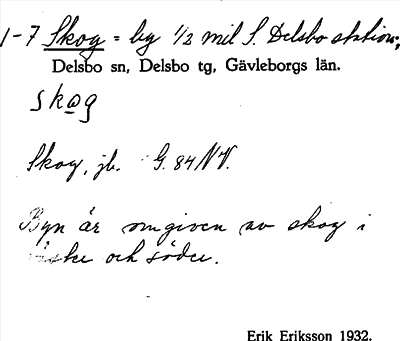 1-7 Skog = by 1/2 mil S. Delsbo station;
Delsbo sn, Delsbo tg, Gävleborgs län.
skog
Skog, jb. G. 84 NV.
Byn är omgiven av skog i
och söder.
Erik Eriksson 1932.